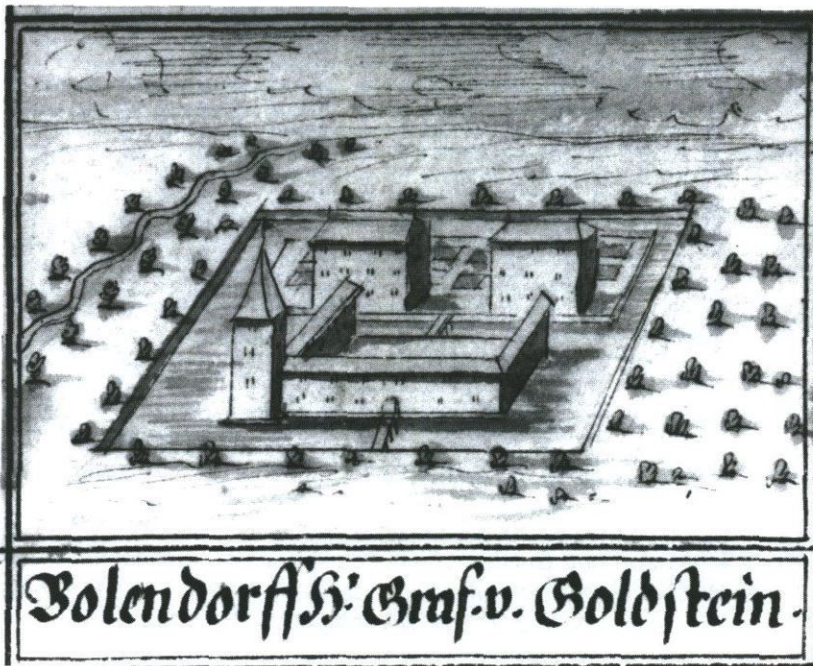 Bolendorff H: Graf. v. Goldstein.